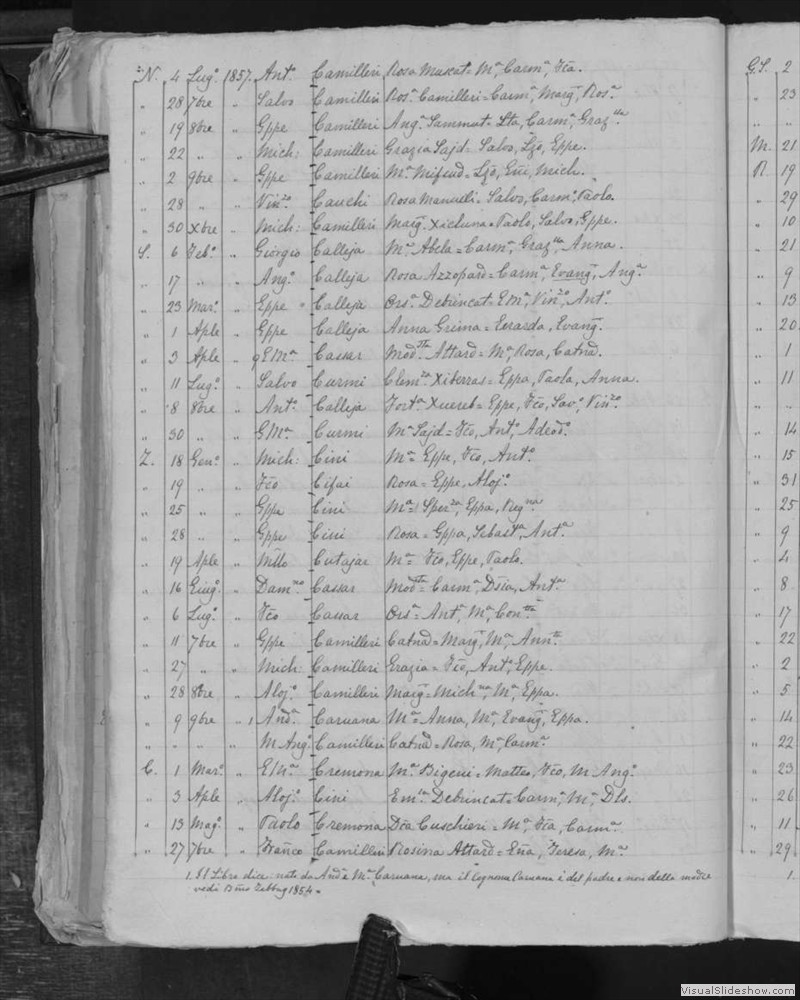 N. 4 Lug.o 1857. Ant.o Camilleri Rosa Muscat = M.a, Carm.a, Fca.
" 28 7bre " Salvo Camilleri Ros.a Camilleri = Carm.a, Marg.a, Ros.a
" 19 8bre " Gppe Camilleri Ang.a Sammut = Carm.a, Graz.lla
" 22 " " Mich: Camilleri Grazia Sajd = Salvo, Lzo, Eppe.
" 2 9bre " Gppe Camilleri M.a Mifsud = Lzo, Mich.
" 28 " " Vin.zo Cauchi Rosa = Salvo, Carm.o, Paolo.
" 30 Xbre " Mich: Camilleri Marg.a Xicluna = Paolo, Salvo, Eppe.
S. 6 Feb.o " Giorgio Calleja M.a Abela = Carm.a, Graz.lla, Anna.
" 17 " " Ang.o Calleja Rosa Azzopard = Carm.a, Evang.a, Ang.a
" 23 Mar.o " Eppe Calleja Ors.a Debrincat = Vin.zo, Ant.o
" 1 Aple " Eppe Calleja Anna Grima = Evang.
" 3 Aple " Cassar Mod.sta Attard = M.a, Rosa, Catnd.
" 11 Lug.o " Salvo Curmi Clem.za Xiberras = Eppa, Paola, Anna.
" 8 8bre " Ant.o Calleja Fort.a Xuereb = Eppe, Fco, Sav.o, Vin.zo
" 30 " " GM.a Curmi M.a Sajd = Fco, Ant.o, Adeod.o
Z. 18 Gen.o " Mich: Cini M.a = Eppe, Fco, Ant.o
" 19 " " Fco Cifai Rosa = Eppe, Aloj.o
" 25 " " Gppe Cini M.a = Sper.za, Eppa, Reg.na
" 28 " " Gppe Cini Rosa = Gppa, Sebast.a, Ant.a
" 19 Aple " Cutajar M.a = Fco, Eppe, Paolo.
" 16 Giug.o " Dam.no Cassar Mod.ta = Carm.a, Ant.a
" 6 Lug.o " Fco Cassar Ors.a = Ant.a, M.a, Con.tta
" 11 7bre " Gppe Camilleri Catnd = Marg.a, M.a, Ann.tta
" 27 " " Mich: Camilleri Grazia = Fco, Ant.o, Eppe.
" 28 8bre " Aloj.o Camilleri Marg. = Mich.na, M.a, Eppa.
" 9 9bre " 1 And.a Caruana M.a = Anna, M.a, Evang., Eppa.
" " " " M Ang.o Camilleri Catnd = Rosa, M.a, Carm.a
C. 1 Mar.o " Cremona M.a Bigeni = Matteo, Fco, M Ang.o
" 3 Aple " Aloj.o Cini Em.la Debrincat = Carm.a, M.a, Dls.
" 13 Mag.o " Paolo Cremona Cuschieri = M.a, Fca, Carm.a
" 27 7bre " Franco Camilleri Rosina Attard = Teresa, M.a
1. Il Libro dice: nato da And. e M.a Caruana, ma il Cognome Caruana è del padre e non della madre
vedi Zebbug 1854.
G.S. 2
" 23
" "
M. 21
R. 19
" 29
" 10
" 21
" 9
" 13
" 20
" 1
" 11
" "
" 14
" 15
" 31
" 25
" 9
" 4
" 8
" 17
" 22
" 2
" 5
" 14
" 22
" 23
" 26
" 11
" 29
1.
VisualSlideshow.com